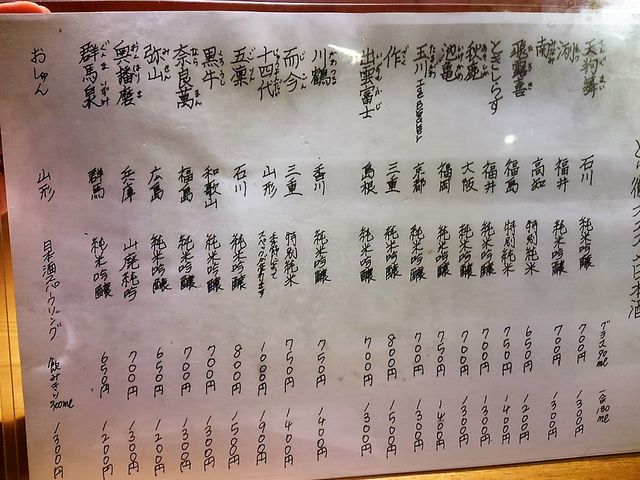 グラス90ml 一合180ml
天狗舞 てんぐまい 石川 純米吟醸 700円 1300円
渕 福井 純米吟醸 700円 1300円
南 みなみ 高知 特別純米 650円 1200円
飛露喜 福島 特別純米 750円 1400円
ときしらず 福井 純米吟醸 700円 1300円
秋鹿 あきしか 大阪 純米吟醸 700円 1300円
池亀 いけかめ 福岡 純米吟醸 750円 1400円
玉川 たまがわ 京都 純米吟醸 700円 1300円
作 ざく 三重 純米吟醸 800円 1500円
出雲富士 いずもふじ 島根 純米吟醸 700円 1300円
川鶴 かわつる 香川 純米吟醸 750円 1400円
而今 じこん 三重 特別純米 750円 1400円
十四代 じゅうよんだい 山形 1000円 1900円
五凛 ごりん 石川 純米吟醸 800円 1500円
黒牛 くろうし 和歌山 純米吟醸 700円 1300円
奈良萬 ならまん 福島 純米吟醸 700円 1300円
弥山 みせん 広島 純米吟醸 650円 1200円
奥播磨 おくはりま 兵庫 山廃純吟 700円 1300円
群馬泉 ぐんまいずみ 群馬 純米吟醸 650円 1200円
おしゅん 山形 日本酒スパークリング 飲みきり300ml 1300円